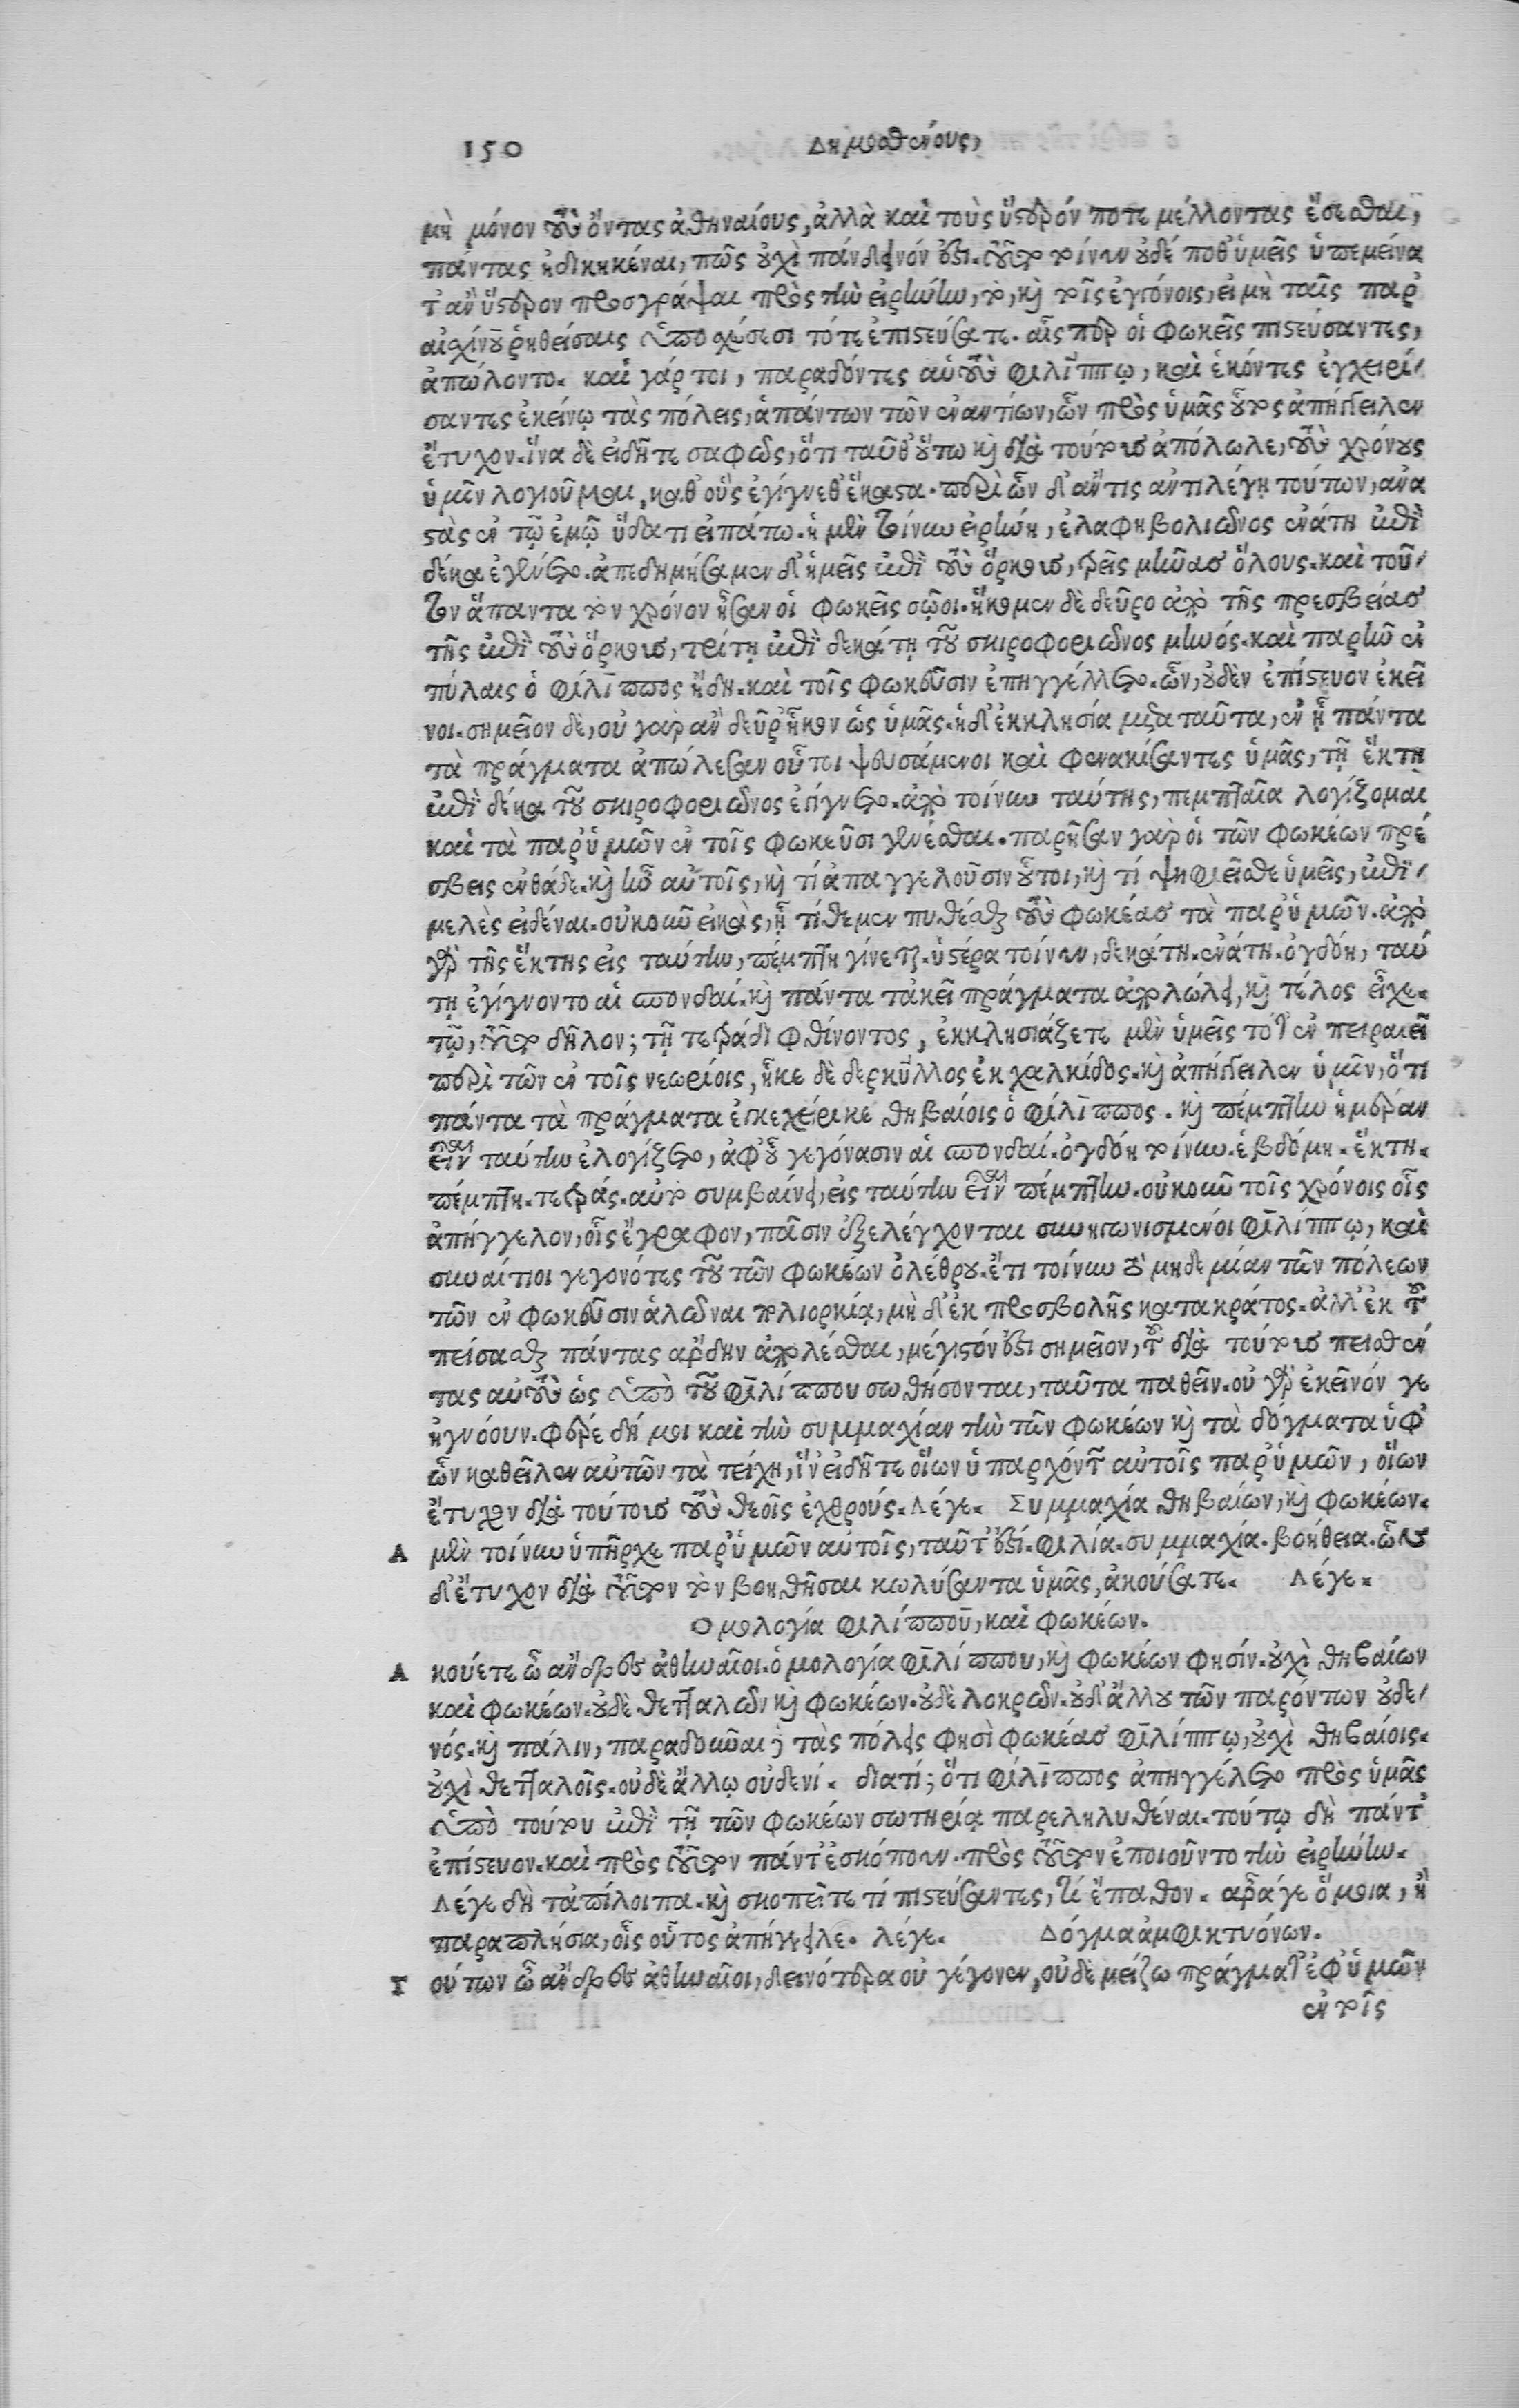 150 Δημοσθένους,
μὴ μόνον τοὺς ὄντας ἀθηναίους, ἀλλὰ καὶ τοὺς ὕστερόν ποτε μέλλοντας ἔσεσθαι,
πάντας ἠδικηκέναι, πῶς οὐχὶ πάνδεινόν ἐστι. τοῦτο τοίνυν οὐδέ ποθ' ὑμεῖς ὑπεμείνα
τ' ἂν ὕστερον προσγράψαι πρὸς τὴν εἰρήνην, τὸ, καὶ τοῖς ἐγγόνοις, εἰ μὴ ταῖς παρ'
αἰσχίνου ῥηθείσαις ὑποσχέσεσι τότε ἐπιστεύσατε. αἷς περ οἱ φωκεῖς πιστεύσαντες,
ἀπώλοντο. καὶ γάρ τοι, παραδόντες αὑτοὺς φιλίππῳ, καὶ ἑκόντες ἐγχειρί-
σαντες ἐκείνῳ τὰς πόλεις, ἁπάντων τῶν ἐναντίων, ὧν πρὸς ὑμᾶς οὗτος ἀπήγγειλεν
ἔτυχον. ἵνα δὲ εἰδῆτε σαφῶς, ὅτι ταῦθ' οὕτω καὶ διὰ τούτους ἀπόλωλε, τοὺς χρόνους
ὑμῖν λογιοῦμαι, καθ' οὓς ἐγίγνεθ' ἕκαστα. περὶ ὧν δ' ἄν τις ἀντιλέγῃ τούτων, ἀνα
στὰς ἐν τῷ ἐμῷ ὕδατι εἰπάτω. ἡ μὲν τοίνυν εἰρήνη, ἐλαφηβολιῶνος ἐνάτη ἐπὶ
δέκα ἐγένετο. ἀπεδημήσαμεν δ' ἡμεῖς ἐπὶ τοὺς ὅρκους, τρεῖς μῆνας ὅλους. καὶ τοῦ-
τον ἅπαντα τὸν χρόνον ἦσαν οἱ φωκεῖς σῷοι. ἥκομεν δὲ δεῦρο ἀπὸ τῆς πρεσβείας
τῆς ἐπὶ τοὺς ὅρκους, τρίτῃ ἐπὶ δεκάτῃ τοῦ σκιροφοριῶνος μηνός. καὶ παρῆν ἐν
πύλαις ὁ φίλιππος ἤδη. καὶ τοῖς φωκεῦσιν ἐπηγγέλλετο. ὧν, οὐδὲν ἐπίστευον ἐκεῖ
νοι. σημεῖον δὲ, οὐ γὰρ ἂν δεῦρ' ἧκον ὡς ὑμᾶς. ἡ δ' ἐκκλησία μετὰ ταῦτα, ἐν ᾗ πάντα
τὰ πράγματα ἀπώλεσαν οὗτοι ψευσάμενοι καὶ φενακίσαντες ὑμᾶς, τῇ ἕκτῃ
ἐπὶ δέκα τοῦ σκιροφοριῶνος ἐγίγνετο. ἀπὸ τοίνυν ταύτης, πεμπταῖα λογίζομαι
καὶ τὰ παρ' ὑμῶν ἐν τοῖς φωκεῦσι γενέσθαι. παρῆσαν γὰρ οἱ τῶν φωκέων πρέ
σβεις ἐνθάδε. καὶ ἦν αὐτοῖς, καὶ τί ἀπαγγελοῦσιν οὗτοι, καὶ τί ψηφιεῖσθε ὑμεῖς, ἐπι-
μελὲς εἰδέναι. οὐκοῦν εἰκὸς, ᾗ τίθεμεν πυθέσθαι τοὺς φωκέας τὰ παρ' ὑμῶν. ἀπὸ
γὰρ τῆς ἕκτης εἰς ταύτην, πέμπτη γίνεται. ὑστέρα τοίνυν, δεκάτη. ἐνάτη. ὀγδόη, ταύ
τῃ ἐγίγνοντο αἱ σπονδαί. καὶ πάντα τἀκεῖ πράγματα ἀπολώλει, καὶ τέλος εἶχε.
τῷ, τοῦτο δῆλον; τῇ τετράδι φθίνοντος, ἐκκλησιάζετε μὲν ὑμεῖς τότ' ἐν πειραιεῖ
περὶ τῶν ἐν τοῖς νεωρίοις, ἧκε δὲ δερκύλλος ἐκ χαλκίδος. καὶ ἀπήγγειλεν ὑμῖν, ὅτι
πάντα τὰ πράγματα ἐγκεχείρικε θηβαίοις ὁ φίλιππος. καὶ πέμπτην ἡμέραν
εἶναι ταύτην ἐλογίζετο, ἀφ' οὗ γεγόνασιν αἱ σπονδαί. ὀγδόη τοίνυν. ἑβδόμη. ἕκτη.
πέμπτη. τετράς. αὐτὸ συμβαίνει, εἰς ταύτην εἶναι πέμπτην. οὐκοῦν τοῖς χρόνοις οἷς
ἀπήγγελον, οἷς ἔγραφον, πᾶσιν ἐξελέγχονται συνηγωνισμένοι φιλίππῳ, καὶ
συναίτιοι γεγονότες τοῦ τῶν φωκέων ὀλέθρου. ἔτι τοίνυν τὸ μηδεμίαν τῶν πόλεων
τῶν ἐν φωκεῦσιν ἁλῶναι πολιορκίᾳ, μὴ δ' ἐκ προσβολῆς κατακράτος. ἀλλ' ἐκ τοῦ
πείσασθαι πάντας ἄρδην ἀπολέσθαι, μέγιστόν ἐστι σημεῖον, τοῦ διὰ τούτους πεισθέν
τας αὐτοὺς ὡς ὑπὸ τοῦ φιλίππου σωθήσονται, ταῦτα παθεῖν. οὐ γὰρ ἐκεῖνόν γε
ἠγνόουν. φέρε δή μοι καὶ τὴν συμμαχίαν τὴν τῶν φωκέων καὶ τὰ δόγματα ὑφ'
ὧν καθεῖλον αὐτῶν τὰ τείχη, ἵν' εἰδῆτε οἵων ὑπαρχόντων αὐτοῖς παρ' ὑμῶν, οἵων
ἔτυχον διὰ τούτους τοὺς θεοῖς ἐχθρούς. Λέγε. Συμμαχία θηβαίων, καὶ φωκέων.
Α μὲν τοίνυν ὑπῆρχε παρ' ὑμῶν αὐτοῖς, ταῦτ' ἐστί. φιλία. συμμαχία. βοήθεια. ὧν
δ' ἔτυχον διὰ τοῦτον τὸν βοηθῆσαι κωλύσαντα ὑμᾶς, ἀκούσατε. Λέγε.
Ομολογία φιλίππου, καὶ φωκέων.
Α κούετε ὦ ἄνδρες ἀθηναῖοι. ὁμολογία φιλίππου, καὶ φωκέων φησίν. οὐχὶ θηβαίων
καὶ φωκέων. οὐδὲ θετταλῶν καὶ φωκέων. οὐδὲ λοκρῶν. οὐδ' ἄλλου τῶν παρόντων οὐδε-
νός. καὶ πάλιν, παραδοῦναι δὲ τὰς πόλεις φησὶ φωκέας φιλίππῳ, οὐχὶ θηβαίοις.
οὐχὶ θετταλοῖς. οὐδὲ ἄλλῳ οὐδενί. διατί; ὅτι φίλιππος ἀπηγγέλετο πρὸς ὑμᾶς
ὑπὸ τούτου ἐπὶ τῇ τῶν φωκέων σωτηρίᾳ παρεληλυθέναι. τούτῳ δὴ πάντ'
ἐπίστευον. καὶ πρὸς τοῦτον πάντ' ἐσκόπουν. πρὸς τοῦτον ἐποιοῦντο τὴν εἰρήνην.
Λέγε δὴ τἀπίλοιπα. καὶ σκοπεῖτε τί πιστεύσαντες, τί ἔπαθον. ἆρά γε ὅμοια, ἢ
παραπλήσια, οἷς οὗτος ἀπήγγειλε. λέγε. Δόγμα ἀμφικτυόνων.
Τ ούτων ὦ ἄνδρες ἀθηναῖοι, δεινότερα οὐ γέγονεν, οὐδὲ μείζω πράγματ' ἐφ' ὑμῶν
ἐν τοῖς